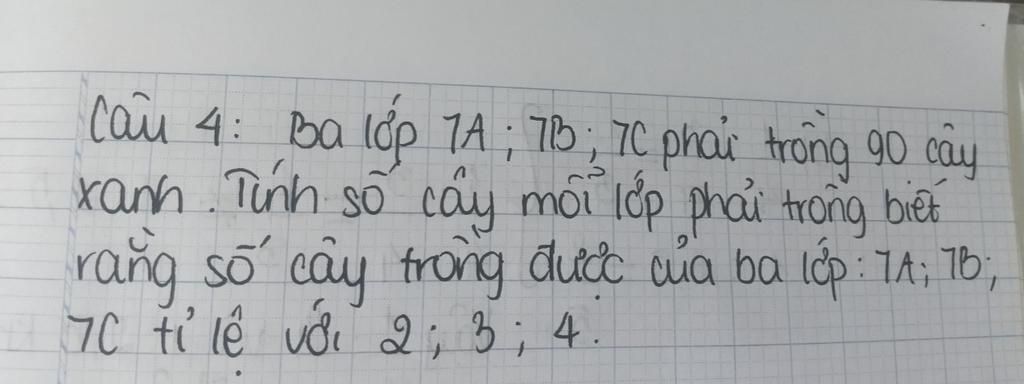 Câu 4: Ba lớp 7A; 7B; 7C phải trồng 90 cây
xanh. Tính số cây mỗi lớp phải trồng biết
rằng số cây trồng được của ba lớp: 7A; 7B;
7C tỉ lệ với 2; 3; 4.